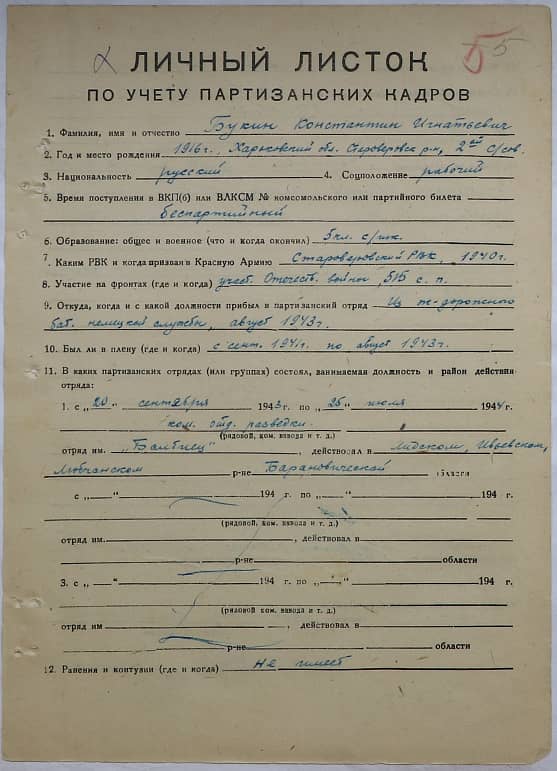 55
ЛИЧНЫЙ ЛИСТОК
ПО УЧЕТУ ПАРТИЗАНСКИХ КАДРОВ
1. Фамилия, имя и отчество Букин Константин Игнатьевич
2. Год и место рождения 1916 г. Харьковский обл. р-н, 2ой с/сов.
3. Национальность русский 4. Соцположение рабочий
5. Время поступления в ВКП(б) или ВЛКСМ № комсомольского или партийного билета
беспартийный
6. Образование: общее и военное (что и когда окончил) 5 кл. с/шк.
7. Каким РВК и когда призван в Красную Армию Староверовский РВК, 1940 г.
8. Участие на фронтах (где и когда) участ. Отечеств. войны, 515 с. п.
9. Откуда, когда и с какой должности прибыл в партизанский отряд Из ж-дорожного
бат. немецкой службы, август 1943 г.
10. Был ли в плену (где и когда) с сент. 1941 г. по август 1943 г.
11. В каких партизанских отрядах (или группах) состоял, занимаемая должность и район действия
отряда:
1. с „20“ сентября 1943 г. по „25“ июля 1944 г.
ком. отд. разведки.
(рядовой, ком. взвода и т. д.)
отряд им. „Балтиец“, действовал в Лидском, Ивьевском,
Любчанском р-не Барановической области
с „ “ 194 г. по „ “ 194 г.
(рядовой, ком. взвода и т. д.)
отряд им. , действовал в
р-не области
3. с „ “ 194 г. по „ “ 194 г.
(рядовой ком. взвода и т. д.)
отряд им , действовал в
р-не области
12. Ранения и контузии (где и когда) не имеет